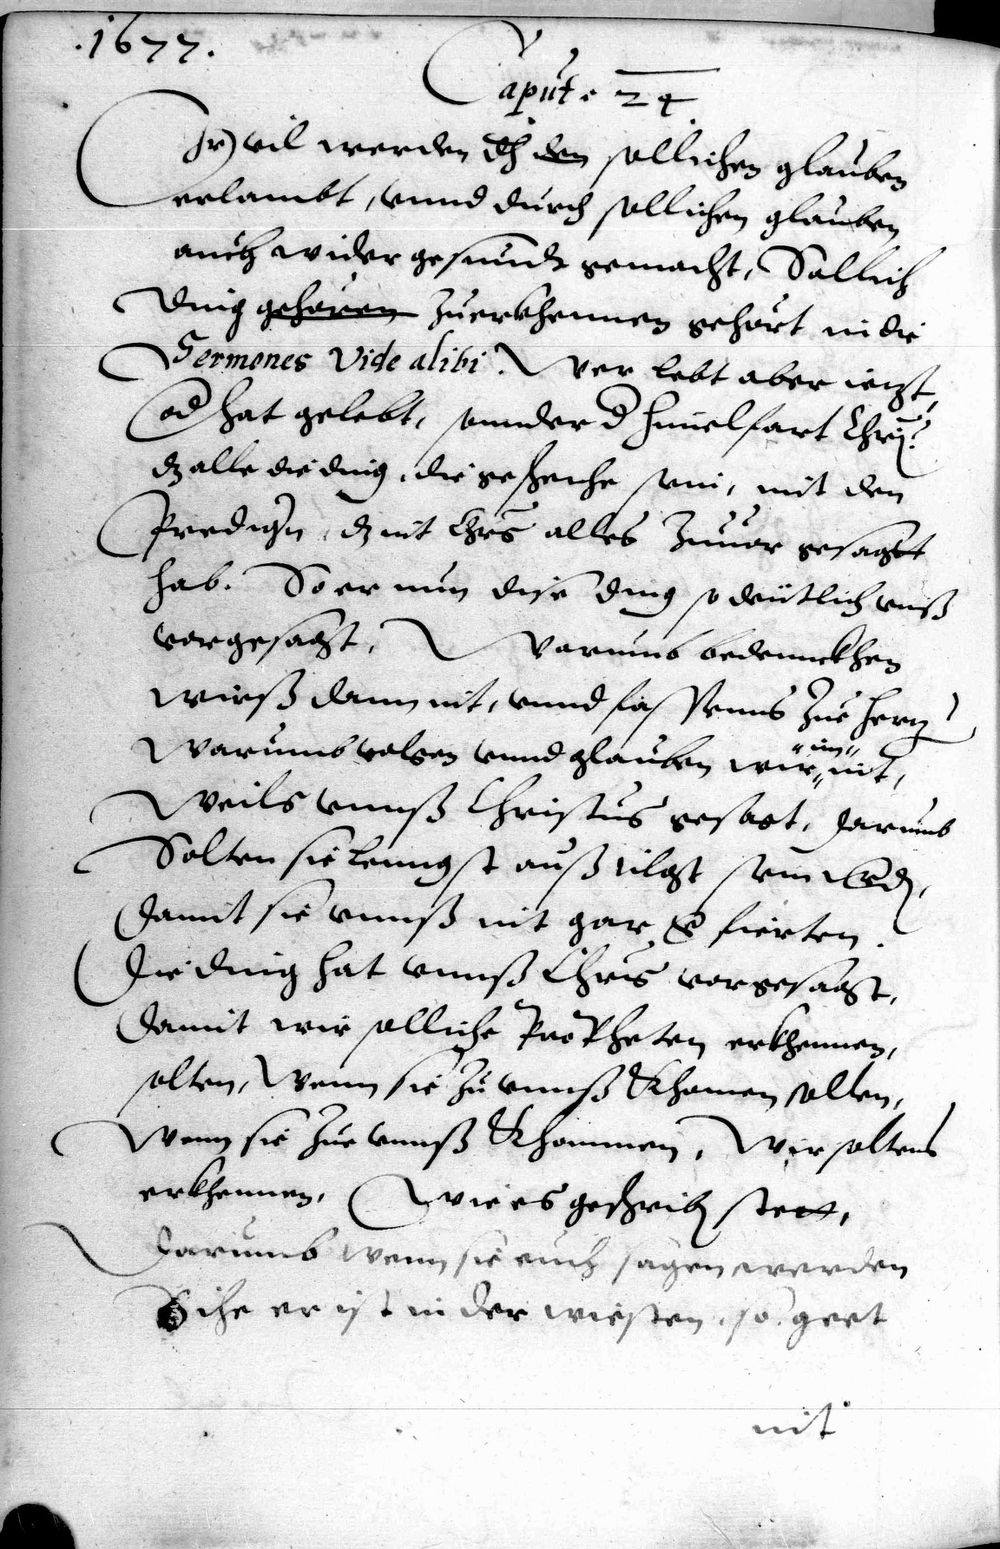 .1677.
Caput. 24
Ir vil werden dch den sollichen glauben
erlambt, vnnd durch sollichen glauben
auch wider gesundt gemacht, Sollich
ding gehören zuerkhennen gehört in die
Sermones Vide alibi. Wer lebt aber ietzt,
od hat gelebt, sunder d himelfart Chrj?
dz alle die ding, die geschehe sein, mit den
Predign, dz nit Chrs alles zuuor gesagt
hab. So er nun dise ding so deütlich vnß
vorgesagt, Warumb bedennckhen
wirß dann nit, vnnd fassenns zue hertz?
Warumb volgen vnnd glauben wir im nit,
Weils vnnß Christus gesagt, darumb
Solten sie lenngst auß tilgt sein
damit sie vnnß nit gar fierten.
Die ding hat vnnß Chrs vorgesagt,
damit wir solliche Propheten erkhennen,
solten, Wenn sie zu vnnß Khomen sollen,
Wenn sie zue vnnß Khommen, Wir soltens
erkhennen, Wie es geschribn stett,
Darumb wenn sie euch sagen werden
Sihe er ist in der wiesten, so geet
nit